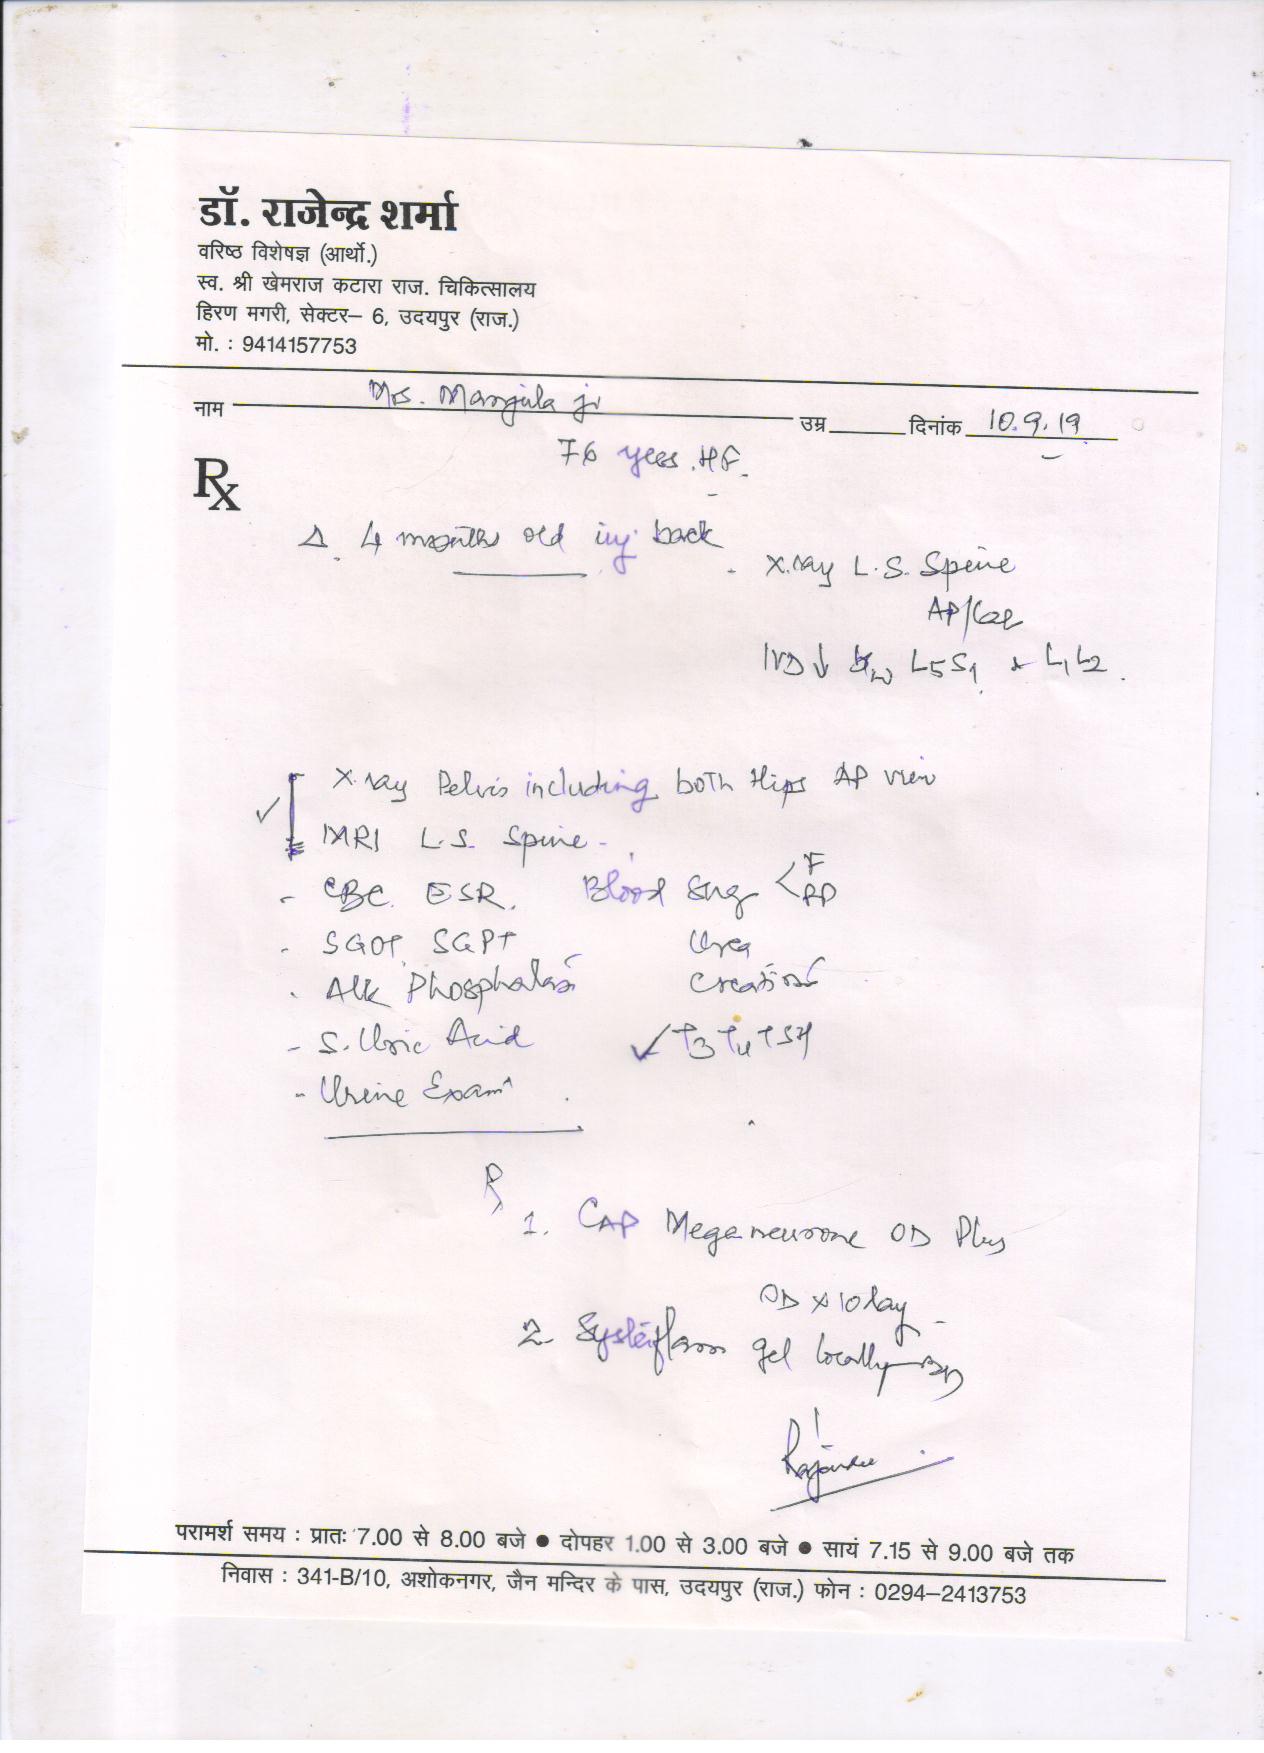 डॉ. राजेन्द्र शर्मा
वरिष्ठ विशेषज्ञ (आर्थो.)
स्व. श्री खेमराज कटारा राज. चिकित्सालय
हिरण मगरी, सेक्टर– 6, उदयपुर (राज.)
मो. : 9414157753
नाम Mrs. Manjula ji उम्र दिनांक 10.9.19
76 years. HF.
Rx
Δ. 4 months old inj. back
X.ray L.S. Spine
AP/Lat
IVD↓ b/w L5S1 & L1L2.
X.ray Pelvis including both Hips AP view
✓ MRI L.S. Spine.
- CBC. ESR. Blood Sug < F PP
- SGOT. SGPT Urea
. Alk Phosphatase Creatinine
- S. Uric Acid ✓ T3 T4 TSH
- Urine Exam
R
1. CAP Meganeurone OD Plus
OD x 10 day
2. Systaflam gel locally BD
परामर्श समय : प्रातः 7.00 से 8.00 बजे ● दोपहर 1.00 से 3.00 बजे ● सायं 7.15 से 9.00 बजे तक
निवास : 341-B/10, अशोकनगर, जैन मन्दिर के पास, उदयपुर (राज.) फोन : 0294–2413753